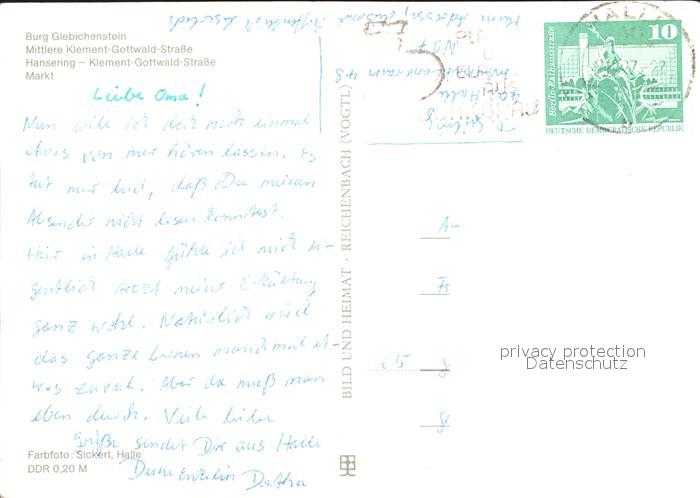 Burg Giebichenstein
Mittlere Klement-Gottwald-Straße
Hansering – Klement-Gottwald-Straße
Markt
Liebe Oma!
Nun will ich doch noch einmal
etwas von mir hören lassen. Es
tut mir leid, daß Du meinen
Absender nicht lesen konntest.
Hier in Halle fühle ich mich ei-
gentlich trotz meiner Erkältung
ganz wohl. Natürlich wird
das ganze einem manchmal et-
was zuviel. Aber da muß man
eben durch. Viele liebe
Grüße sendet Dir aus Halle
Deine Enkelin
Farbfoto: Sickert, Halle
DDR 0,20 M
BILD UND HEIMAT · REICHENBACH (VOGTL)
Meine Adresse,
Halle
10
Berlin-Rathausstraße
DEUTSCHE DEMOKRATISCHE REPUBLIK
privacy protection
Datenschutz